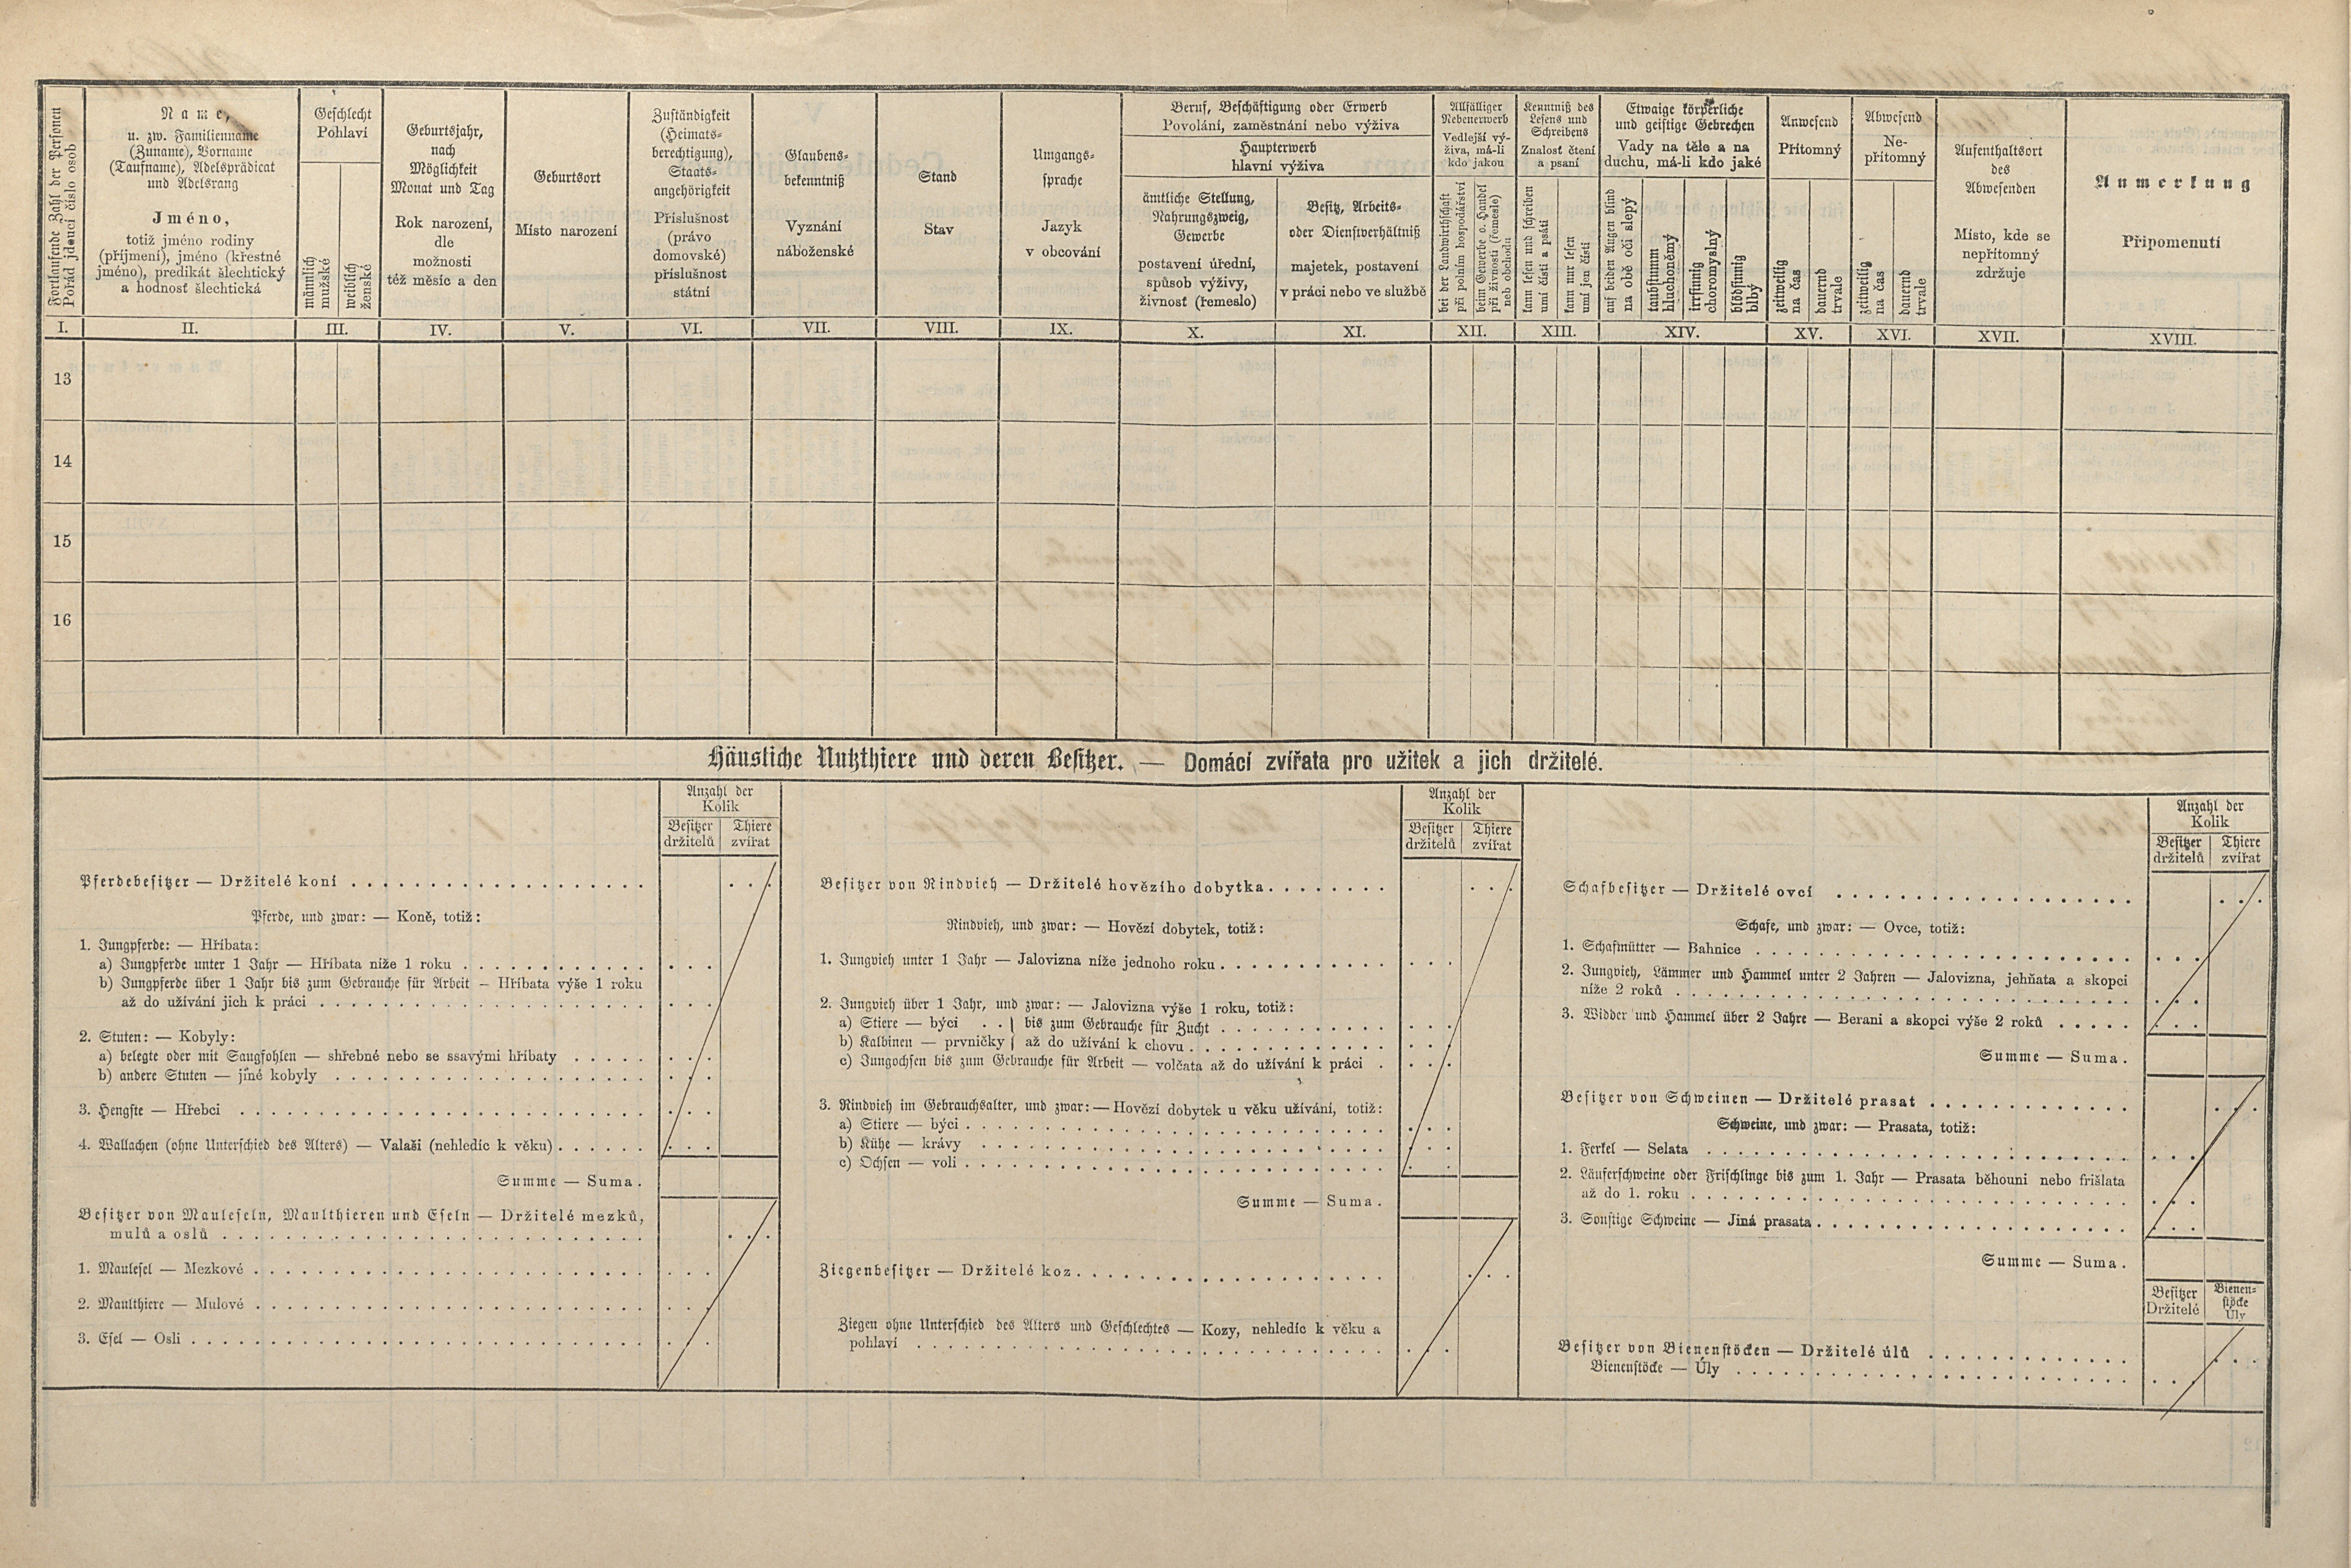 Fortlaufende Zahl der Personen
Pořád jdoucí číslo osob
Name,
u. zw. Familienname
(Zuname), Vorname
(Taufname), Adelsprädicat
und Adelsrang
Jméno,
totiž jméno rodiny
(příjmení), jméno (křestné
jméno), predikát šlechtický
a hodnost šlechtická
Geschlecht
Pohlaví
männlich
mužské
weiblich
ženské
Geburtsjahr,
nach
Möglichkeit
Monat und Tag
Rok narození,
dle
možnosti
též měsíc a den
Geburtsort
Místo narození
Zuständigkeit
(Heimats-
berechtigung),
Staats-
angehörigkeit
Příslušnost
(právo
domovské)
příslušnost
státní
Glaubens-
bekenntniß
Vyznání
náboženské
Stand
Stav
Umgangs-
sprache
Jazyk
v obcování
Beruf, Beschäftigung oder Erwerb
Povolání, zaměstnání nebo výživa
Haupterwerb
hlavní výživa
ämtliche Stellung,
Nahrungszweig,
Gewerbe
postavení úřední,
spůsob výživy,
živnost (řemeslo)
Besitz, Arbeits-
oder Dienstverhältniß
majetek, postavení
v práci nebo ve službě
Allfälliger
Nebenerwerb
Vedlejší vý-
živa, má-li
kdo jakou
bei der Landwirthschaft
při polním hospodářství
beim Gewerbe o. Handel
při živnosti (řemesle)
neb obchodu
Kenntniß des
Lesens und
Schreibens
Znalost čtení
a psaní
kann lesen und schreiben
umí čísti a psáti
kann nur lesen
umí jen čísti
Etwaige körperliche
und geistige Gebrechen
Vady na těle a na
duchu, má-li kdo jaké
auf beiden Augen blind
na obě oči slepý
taubstumm
hluchoněmý
irrsinnig
choromyslný
blödsinnig
blbý
Anwesend
Přítomný
zeitweilig
na čas
dauernd
trvale
Abwesend
Ne-
přítomný
zeitweilig
na čas
dauernd
trvale
Aufenthaltsort
des
Abwesenden
Místo, kde se
nepřítomný
zdržuje
Anmerkung
Připomenutí
I. II. III. IV. V. VI. VII. VIII. IX. X. XI. XII. XIII. XIV. XV. XVI. XVII. XVIII.
13
14
15
16
Häusliche Nutzthiere und deren Besitzer. — Domácí zvířata pro užitek a jich držitelé.
Anzahl der
Kolik
Besitzer Thiere
držitelů zvířat
Pferdebesitzer — Držitelé koní
Pferde, und zwar: — Koně, totiž:
1. Jungpferde: — Hříbata:
a) Jungpferde unter 1 Jahr — Hříbata níže 1 roku
b) Jungpferde über 1 Jahr bis zum Gebrauche für Arbeit — Hříbata výše 1 roku
až do užívání jich k práci
2. Stuten: — Kobyly:
a) belegte oder mit Saugfohlen — shřebné nebo se ssavými hříbaty
b) andere Stuten — jiné kobyly
3. Hengste — Hřebci
4. Wallachen (ohne Unterschied des Alters) — Valaši (nehledíc k věku)
Summe — Suma.
Besitzer von Mauleseln, Maulthieren und Eseln — Držitelé mezků,
mulů a oslů
1. Maulesel — Mezkové
2. Maulthiere — Mulové
3. Esel — Osli
Anzahl der
Kolik
Besitzer Thiere
držitelů zvířat
Besitzer von Rindvieh — Držitelé hovězího dobytka
Rindvieh, und zwar: — Hovězí dobytek, totiž:
1. Jungvieh unter 1 Jahr — Jalovizna níže jednoho roku
2. Jungvieh über 1 Jahr, und zwar: — Jalovizna výše 1 roku, totiž:
a) Stiere — býci . . } bis zum Gebrauche für Zucht
b) Kalbinen — prvničky } až do užívání k chovu
c) Jungochsen bis zum Gebrauche für Arbeit — volčata až do užívání k práci
3. Rindvieh im Gebrauchsalter, und zwar: — Hovězí dobytek u věku užívání, totiž:
a) Stiere — býci
b) Kühe — krávy
c) Ochsen — voli
Summe — Suma.
Ziegenbesitzer — Držitelé koz
Ziegen ohne Unterschied des Alters und Geschlechtes — Kozy, nehledíc k věku a
pohlaví
Anzahl der
Kolik
Besitzer Thiere
držitelů zvířat
Schafbesitzer — Držitelé ovcí
Schafe, und zwar: — Ovce, totiž:
1. Schafmütter — Bahnice
2. Jungvieh, Lämmer und Hammel unter 2 Jahren — Jalovizna, jehňata a skopci
níže 2 roků
3. Widder und Hammel über 2 Jahre — Berani a skopci výše 2 roků
Summe — Suma.
Besitzer von Schweinen — Držitelé prasat
Schweine, und zwar: — Prasata, totiž:
1. Ferkel — Selata
2. Läuferschweine oder Frischlinge bis zum 1. Jahr — Prasata běhouni nebo frišlata
až do 1. roku
3. Sonstige Schweine — Jiná prasata
Summe — Suma.
Besitzer Bienen-
Držitelé stöcke
Úly
Besitzer von Bienenstöcken — Držitelé úlů
Bienenstöcke — Úly